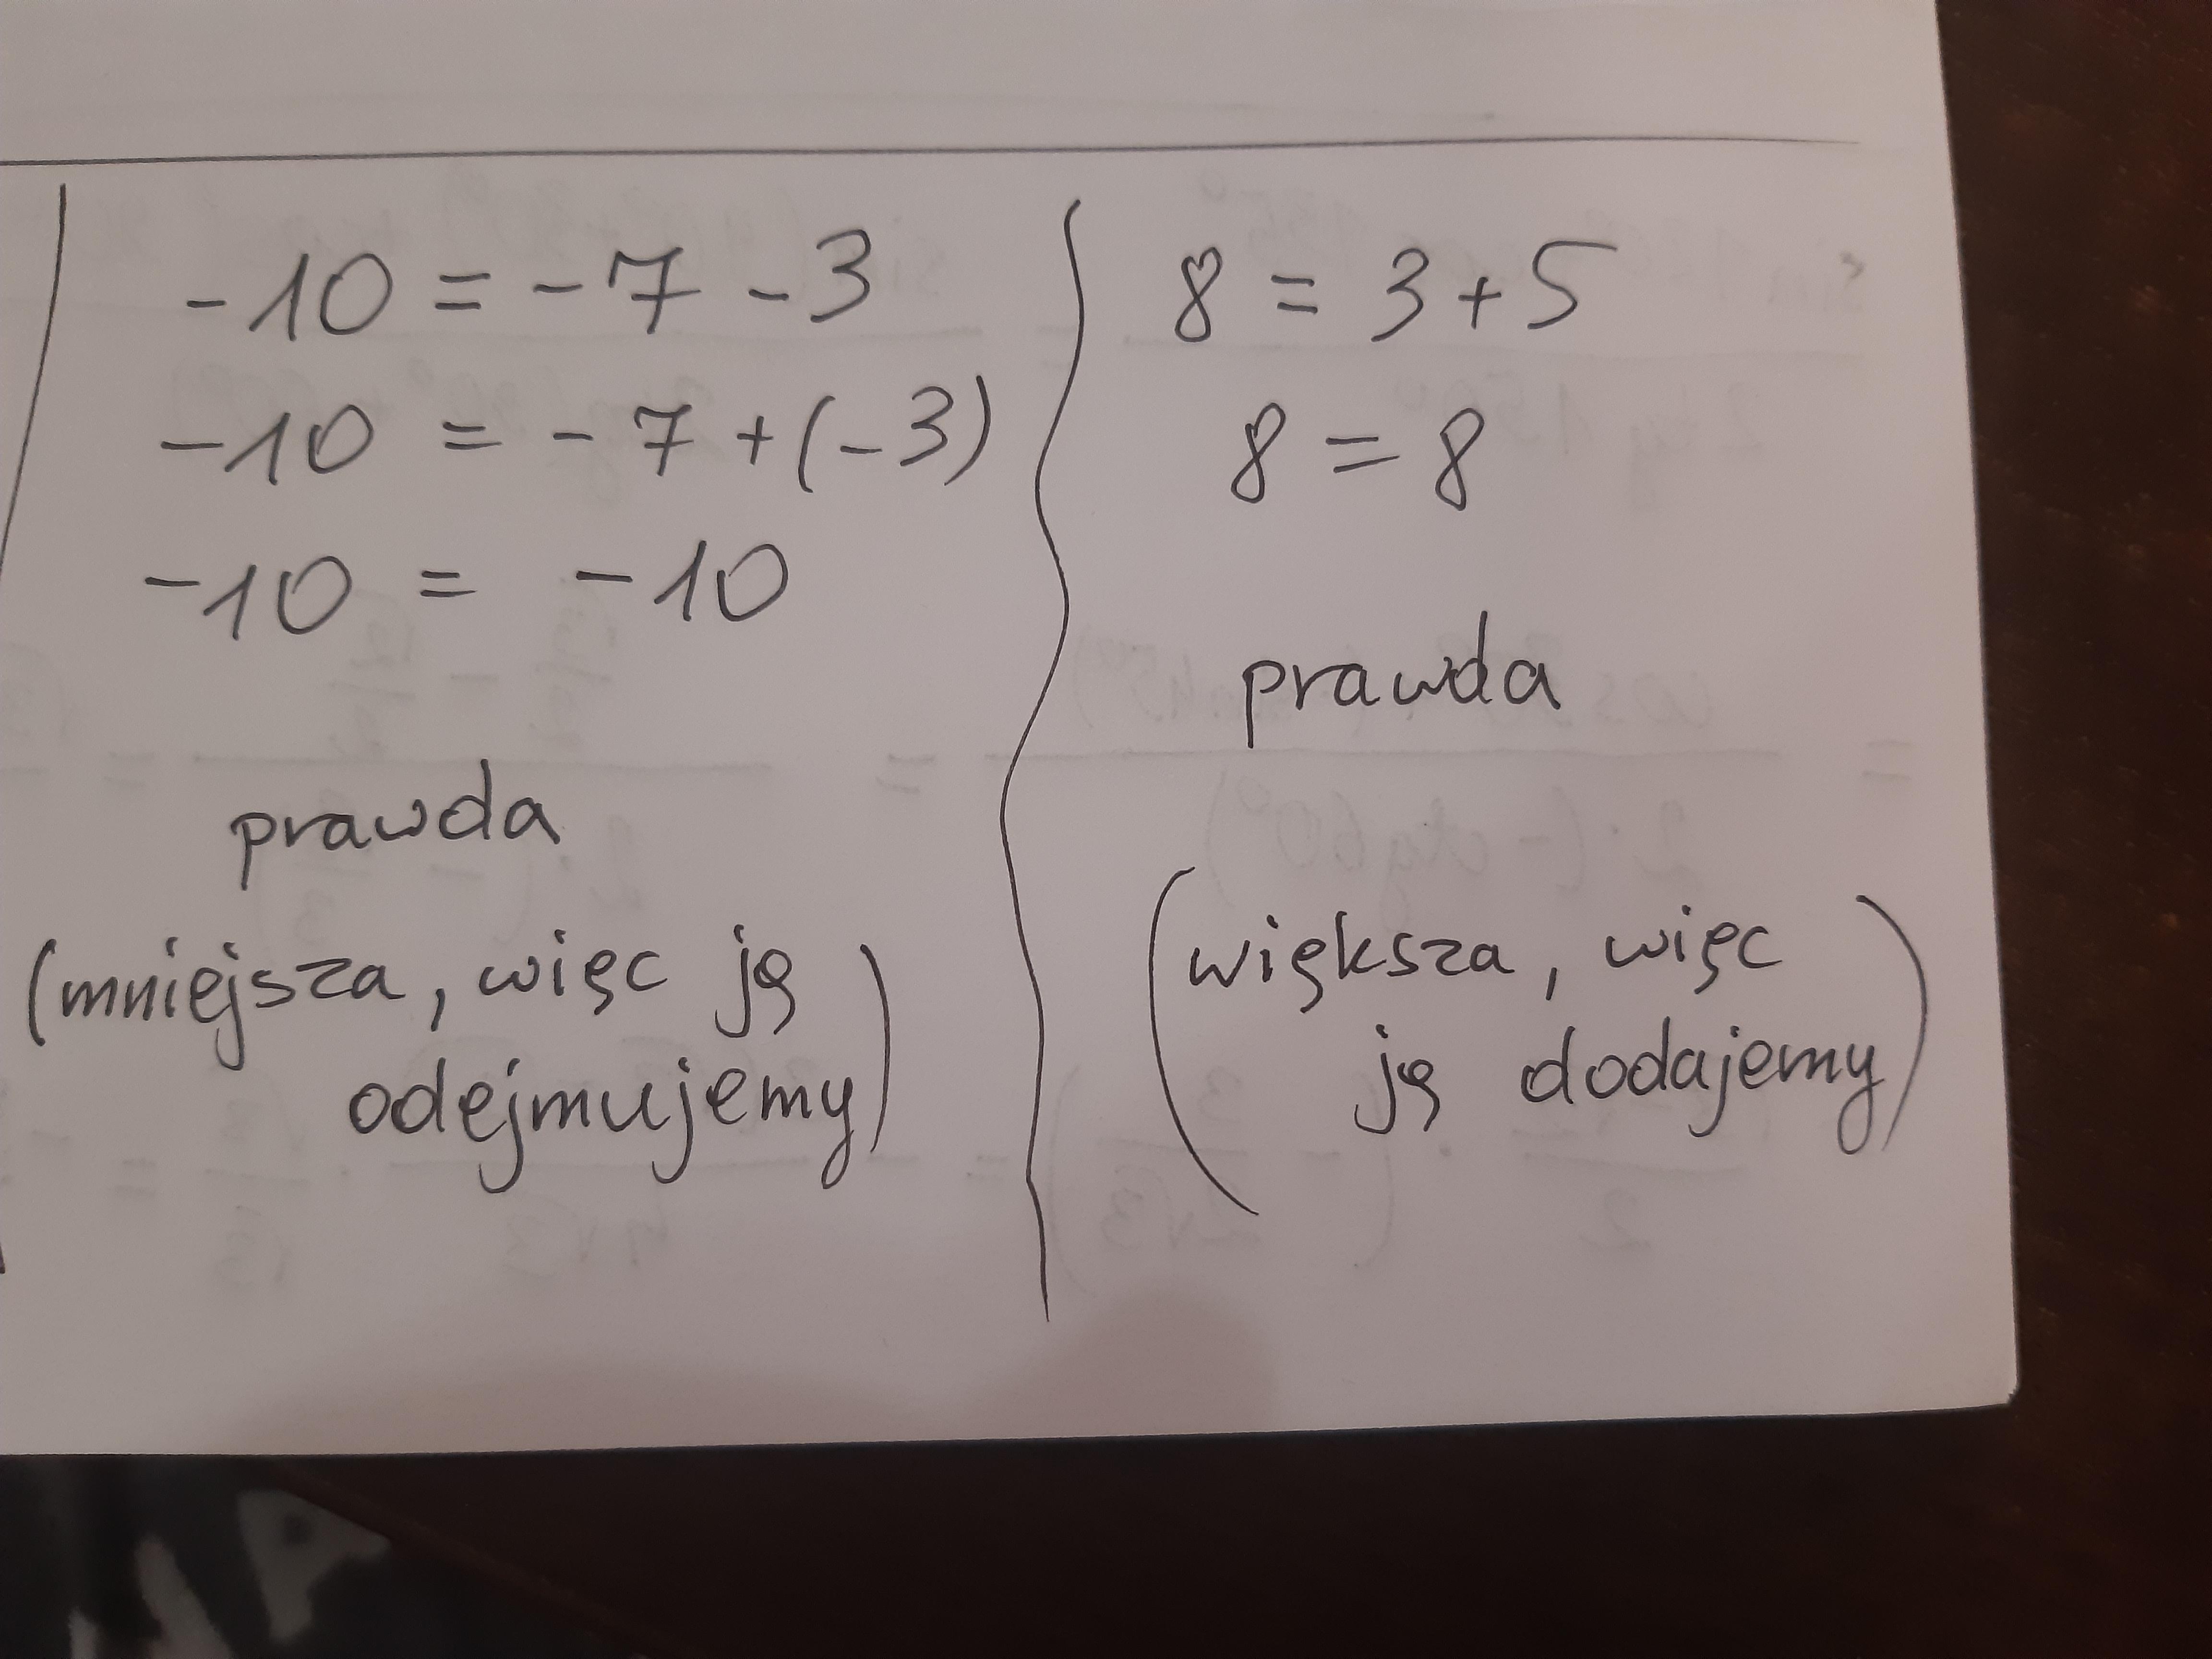 -10 = -7 -3
-10 = -7 +(-3)
-10 = -10
prawda
(mniejsza, więc ją
odejmujemy)
8 = 3+5
8 = 8
prawda
(większa, więc
ją dodajemy)